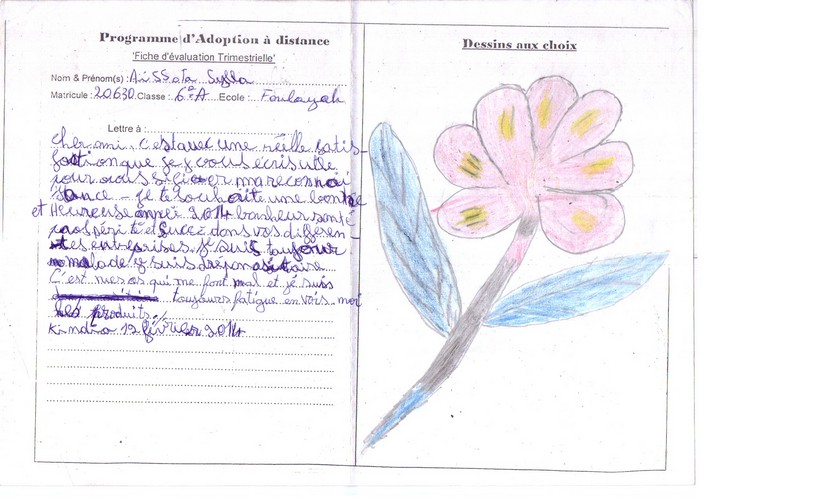 Programme d'Adoption à distance
'Fiche d'évaluation Trimestrielle'
Nom & Prénom(s) : Aissata Sylla
Matricule : 20630 Classe : 6e A Ecole : Foulayah
Lettre à :
Cher ami, c'est avec une réelle satis-
faction que je vous écris
pour vous ma reconnai
ssance - je te souhaite une bonne
et Heureuse année 2014 bonheur santé
prospérité et Succez dans vos différen -
tes entreprises. je suis toujours
malade je suis drépanositaire
C'est mes os qui me font mal et je suis
toujours fatigue envois - moi
les produits ./.
Kindia 12 février 2014
Dessins aux choix